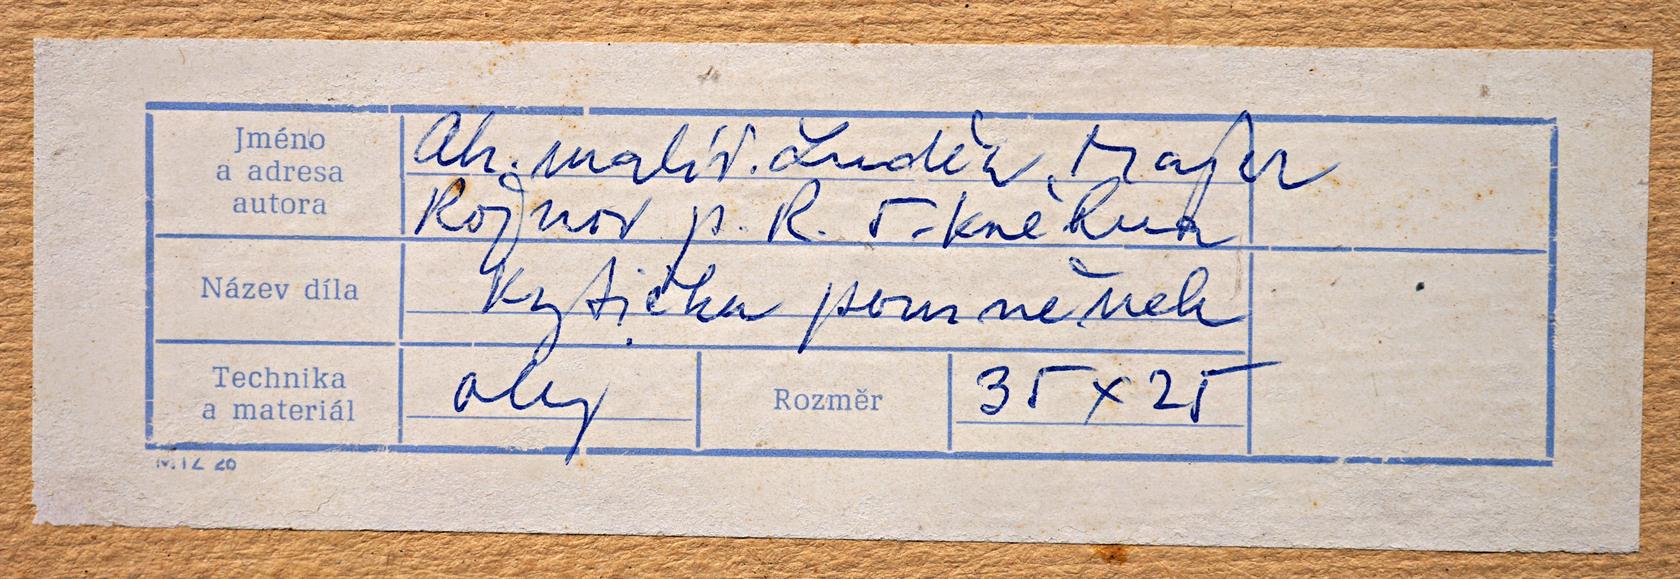 Jméno
a adresa
autora
Ak. malíř. Luděk Majer
Rožnov p. R. 5. května
Název díla
Kytička pomněnek
Technika
a materiál
olej
Rozměr
35 x 25
MTZ 26